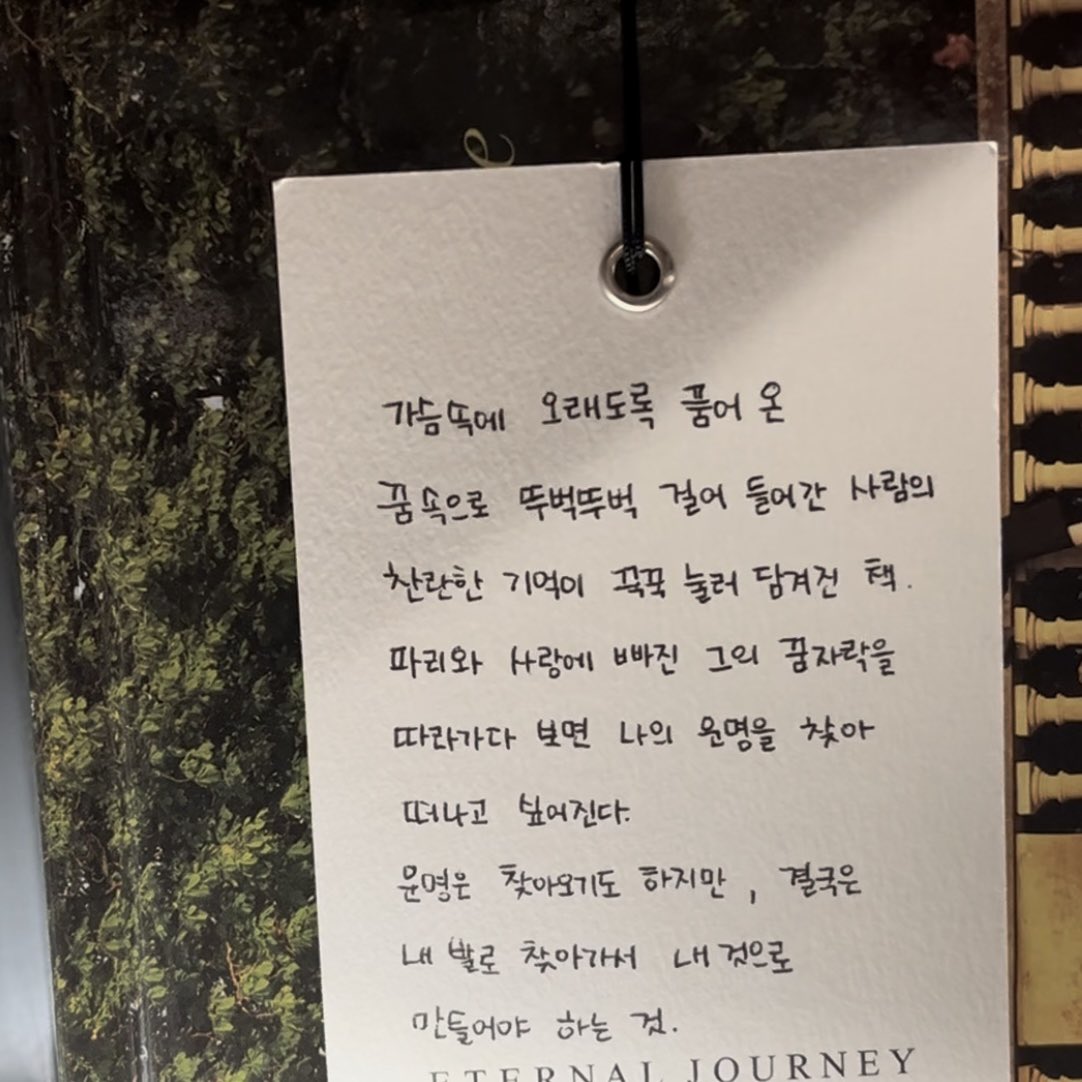 가슴속에 오래도록 품어 온
꿈 속으로 뚜벅뚜벅 걸어 들어간 사람의
찬란한 기억이 꾹꾹 눌러 담겨진 책.
파리와 사랑에 빠진 그의 꿈자락을
따라가다 보면 나의 운명을 찾아
떠나고 싶어진다.
운명은 찾아오기도 하지만, 결국은
내 발로 찾아가서 내 것으로
만들어야 하는 것.
ETERNAL JOURNEY